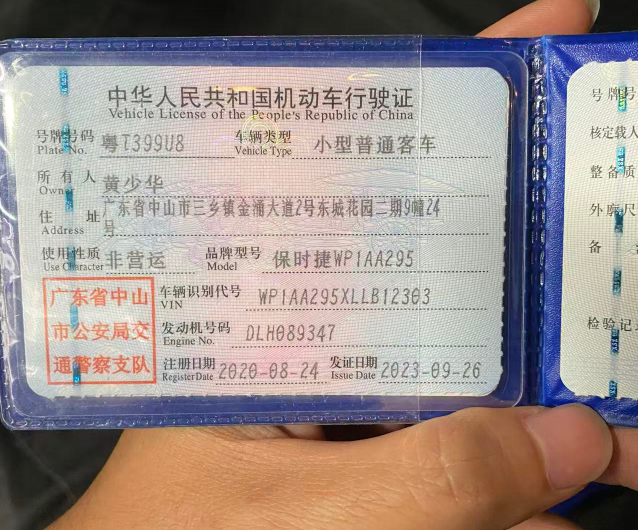 中华人民共和国机动车行驶证
Vehicle License of the People's Republic of China
号牌号码 粤T399U8 车辆类型 小型普通客车
Plate No. Vehicle Type
所有人 黄少华
Owner
住址 广东省中山市三乡镇金涌大道2号东城花园二期9幢24
Address 号
使用性质 非营运 品牌型号 保时捷WP1AA295
Use Character Model
广东省中山
市公安局交
通警察支队
车辆识别代号 WP1AA295XLLB12303
VIN
发动机号码 DLH089347
Engine No.
注册日期 2020-08-24 发证日期 2023-09-26
Register Date Issue Date
号牌号
核定载人
整备质
外廓尺
备
检验记